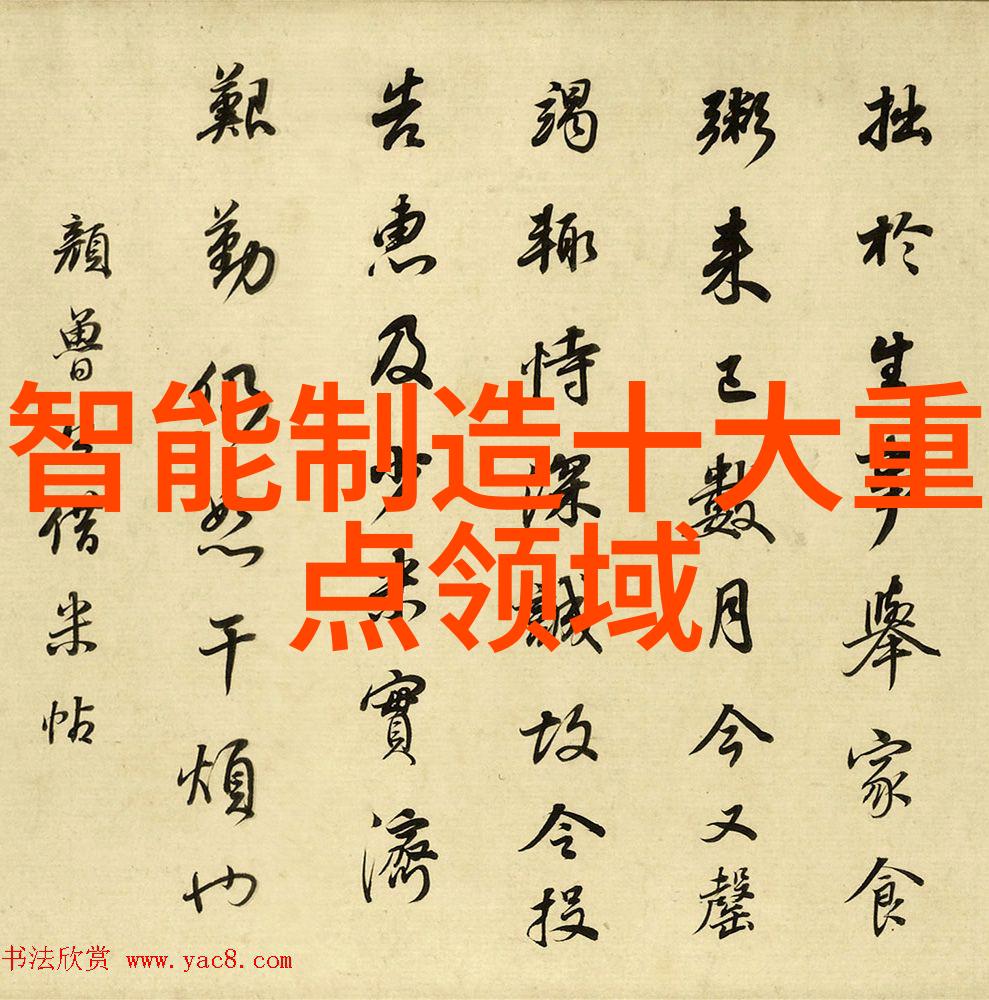 拙於生事舉家食
粥来已數月今又罄
竭輙恃深誠故令投
告惠及少米實濟
艱勤仍恕干煩也
顔魯公借米帖
智能制造十大重
点领域
书法欣赏 www.yac8.com